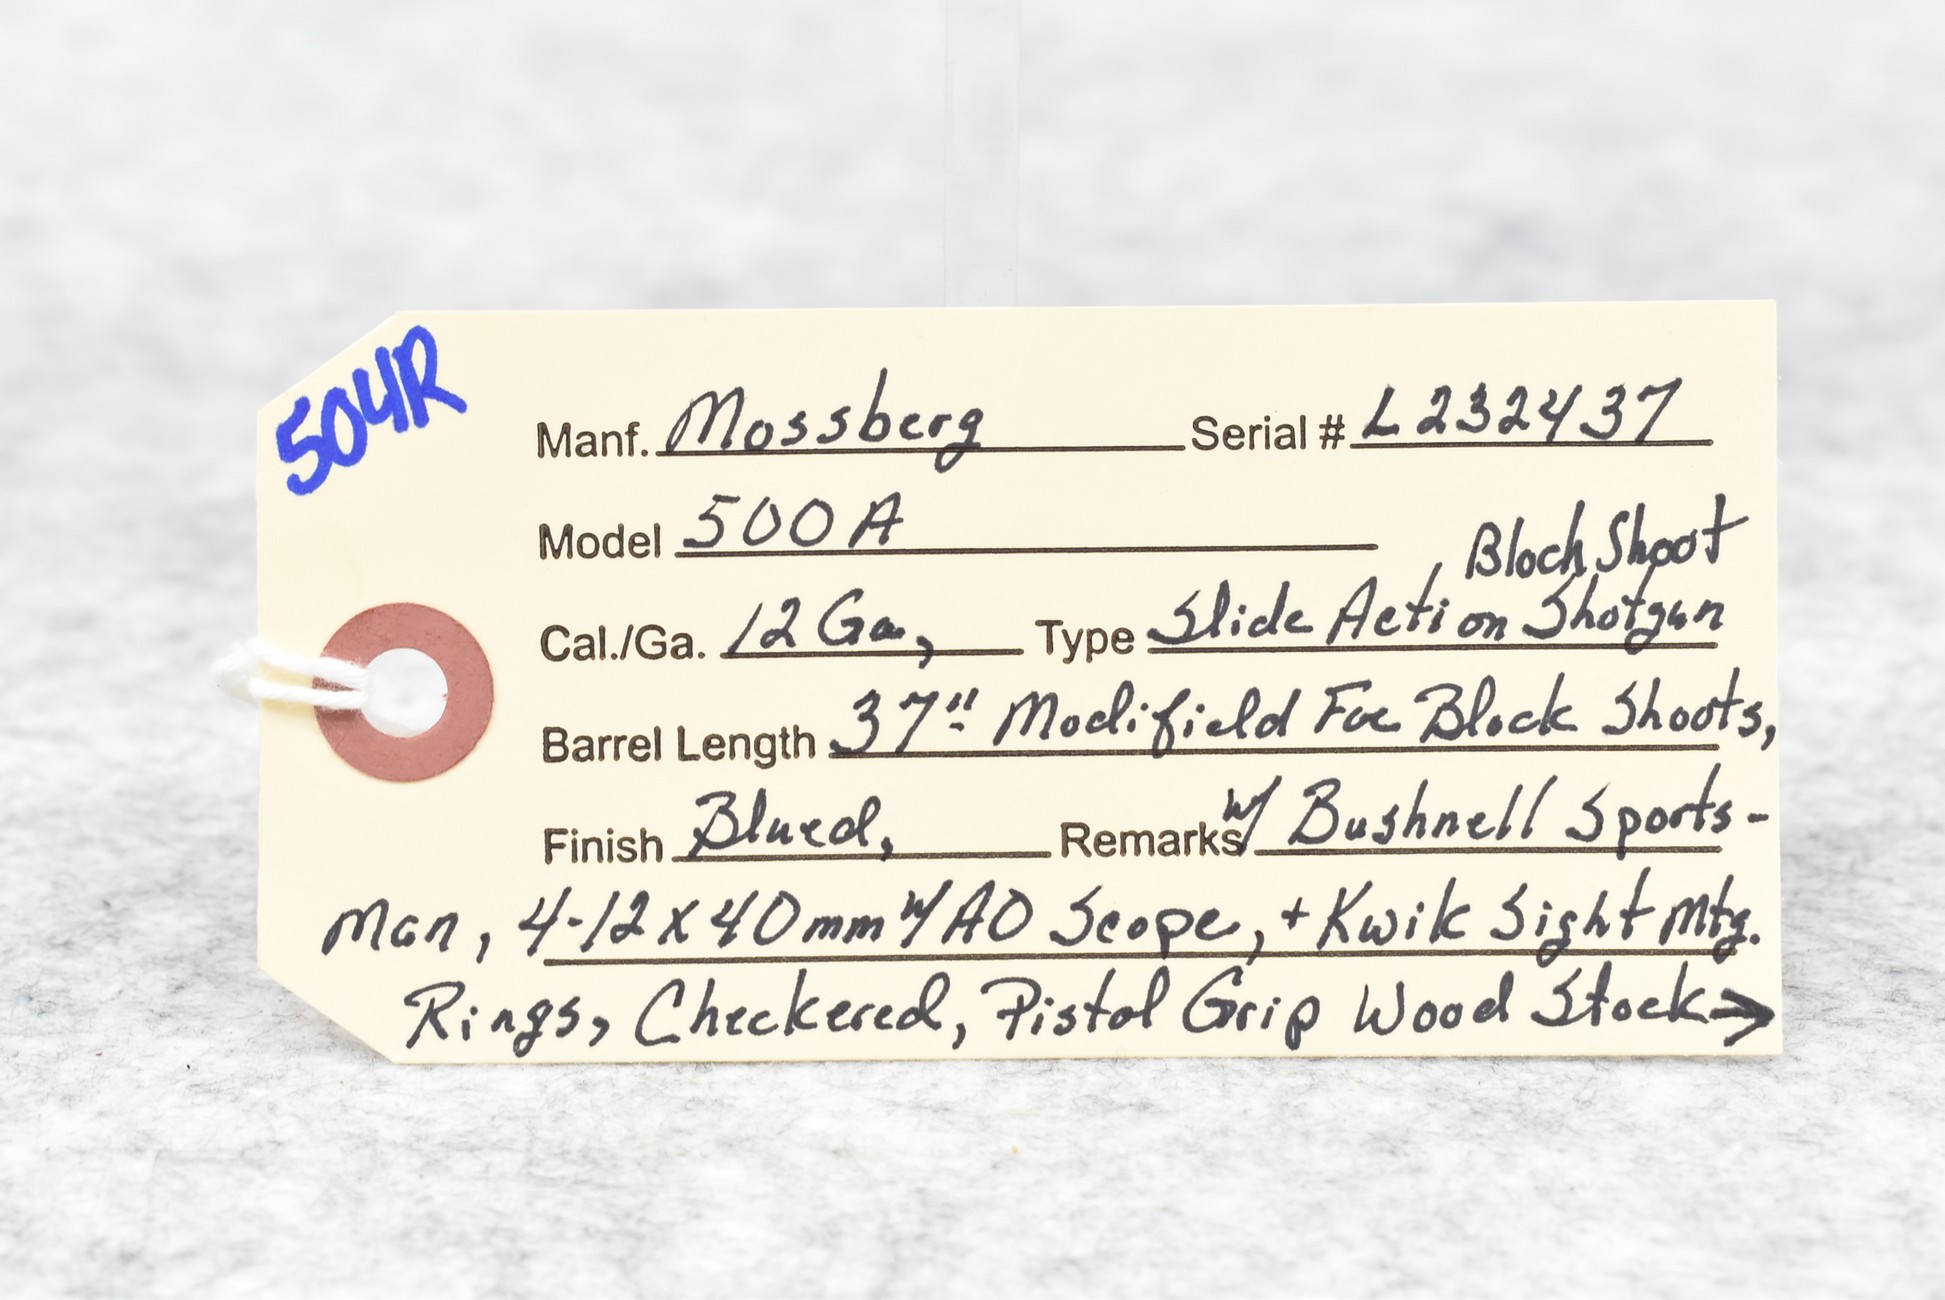 504R
Manf. Mossberg Serial # L232437
Model 500A
Block Shoot
Cal./Ga. 12 Ga, Type Slide Action Shotgun
Barrel Length 37" Modifield For Block Shoots,
Finish Blued, Remarks w/ Bushnell Sports-
Man, 4-12x40mm w/ AO Scope, + Kwik Sight Mtg.
Rings, Checkered, Pistol Grip Wood Stock →